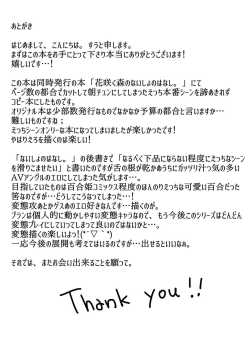 あとがき
はじめまして、こんにちは。すうと申します。
まずはこの本をお手にとって下さり本当にありがとうございます！
嬉しいです…！
この本は同時発行の本「花咲く森のないしょのはなし。」にて
ページ数の都合でカットして朝チュンにしてしまったえっち本番シーンを諦めきれず
コピー本にしたものです。
オリジナル本は少部数発行なものでなかなか予算の都合と言いますか…
難しいものですね；
えっちシーンオンリーな本になってしまいましたが楽しかったです！
やはりえろを描くのは楽しい！
「ないしょのはなし。」の後書きで「なるべく下品にならない程度にえっちなシーン
を滑りこませたい」と書いたのですが舌の根が乾かぬうちにガッツリ汁っ気の多い
AVアングルのエロにしてしまった気がします…。
目指していたものは百合姫コミックス程度のほんのりえっちな可愛い百合だった
筈なのですが…どうしてこうなった！
変態攻めとかゲスめのエロ好きなんです…描くのが。
ブランは個人的に動かしやすい変態キャラなので、もう今後このシリーズはどんどん
変態プレイにしていってしまって良いのではないかと…。
変態描くの楽しいよっ！(*´▽｀*)
一応今後の展開も考えてはいるのですが…出せるといいなぁ。
それでは、またお会い出来ることを願って。
Thank you!!